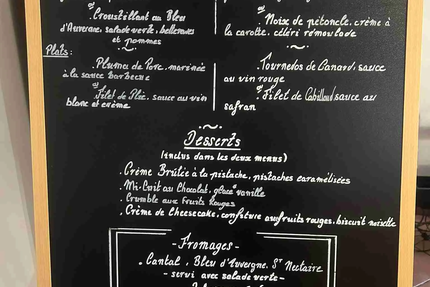 Croustillant au Bleu
d'Auvergne, salade verte, betteraves
et pommes
Noix de pétoncle, crème à
la carotte, céleri rémoulade
Plats:
. Pluma de Porc, marinée
à la sauce barbecue
. Filet de Plie, sauce au vin
blanc et crème
. Tournedos de Canard, sauce
au vin rouge
. Filet de Cabillaud sauce au
safran
Desserts
(inclus dans les deux menus)
. Crème Brûlée à la pistache, pistaches caramélisées
. Mi-Cuit au Chocolat, glace vanille
. Crumble aux Fruits Rouges
. Crème de Cheesecake, confiture aux fruits rouges, biscuit noisette
- Fromages -
. Cantal, Bleu d'Auvergne, St Nectaire
- servi avec salade verte -